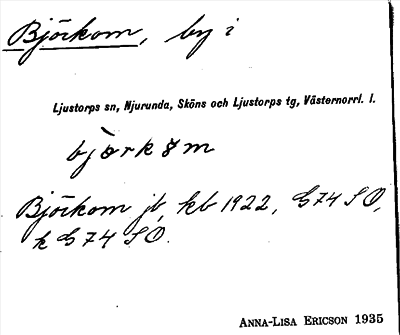 Björkom, by i
Ljustorps sn, Njurunda, Sköns och Ljustorps tg, Västernorrl. l.
bjòrkɷm
Björkom jb, kb 1922, G74 SO,
k G74 SO.
ANNA-LISA ERICSON 1935